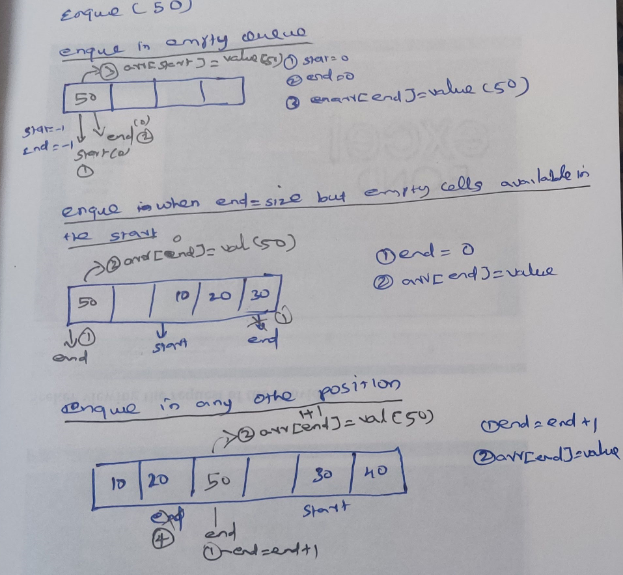 Enque (50)
enque in empty queue
③ arr[start] = value(50)
① star=0
② end=0
③ arr[end]=value (50)
50
star=-1
end=-1
end(0) ②
start(0)
①
enque when end=size but empty cells available in
the start
② arr[end]=val(50)
0
① end = 0
② arr[end]=value
50 10 20 30
①
end
start
①
end
enque in any othe position
② arr[end]=val(50)
+1
① end=end+1
② arr[end]=value
10 20 50 30 40
end
④
end
① end=end+1
start